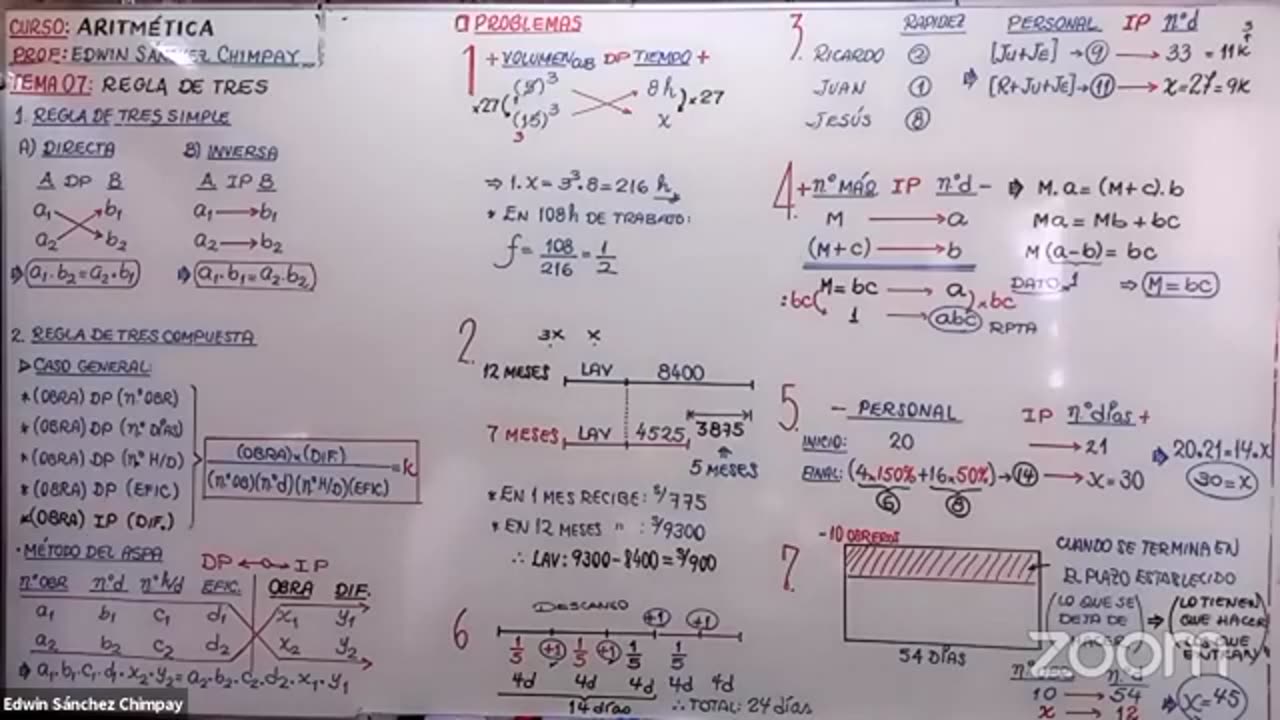 CURSO: ARITMÉTICA
PROF: EDWIN SÁNCHEZ CHIMPAY
TEMA 07: REGLA DE TRES
1. REGLA DE TRES SIMPLE
A) DIRECTA B) INVERSA
A DP B A IP B
a₁ b₁ a₁ → b₁
a₂ b₂ a₂ → b₂
⇒ a₁.b₂=a₂.b₁ ⇒ a₁.b₁=a₂.b₂
2. REGLA DE TRES COMPUESTA
▷ CASO GENERAL:
* (OBRA) DP (n° OBR)
* (OBRA) DP (n° DÍAS)
* (OBRA) DP (n° H/D)
* (OBRA) DP (EFIC)
* (OBRA) IP (DIF.)
(OBRA)×(DIF.)
(n°OB)(n°d)(n°H/D)(EFIC)
=k
• MÉTODO DEL ASPA DP ↔ IP
n°OBR n°d n°h/d EFIC. OBRA DIF.
a₁ b₁ c₁ d₁ x₁ y₁
a₂ b₂ c₂ d₂ x₂ y₂
⇒ a₁.b₁.c₁.d₁.x₂.y₂=a₂.b₂.c₂.d₂.x₁.y₁
PROBLEMAS
1
+ VOLUMEN DP TIEMPO +
(5)³ 8h
×27 ×27
(15)³ x
3
⇒ 1.x=3³.8=216 h
* EN 108h DE TRABAJO:
f=108/216=1/2
2.
3x x
12 MESES LAV 8400
7 MESES LAV 4525 3875
5 MESES
* EN 1 MES RECIBE: S/775
* EN 12 MESES " : S/9300
∴ LAV: 9300-8400=S/900
6
DESCANSO
+1 +1
1/5 +1 1/5 +1 1/5 1/5
4d 4d 4d 4d 4d
14 días ∴ TOTAL: 24 días
3.
RAPIDEZ PERSONAL IP n°d
RICARDO 2 [Ju+Je] → 9 → 33=11k
JUAN 1 ⇒ [R+Ju+Je] → 11 → x=27=9k
JESÚS 8
3
4.
+ n° MÁQ IP n°d - ⇒ M.a=(M+c).b
M → a Ma=Mb+bc
(M+c) → b M(a-b)=bc
DATO 1 ⇒ M=bc
M=bc → a
:bc ×bc
1 → abc RPTA
5.
- PERSONAL IP n° días +
INICIO: 20 → 21 ⇒ 20.21=14.x
FINAL: (4×150%+16×50%) → 14 → x=30 30=x
6 8
7
-10 OBREROS
CUANDO SE TERMINA EN
EL PLAZO ESTABLECIDO
(LO QUE SE DEJA DE HACER) ⇒ (LO TIENEN QUE HACER LOS QUE ENTRAN)
54 DÍAS
n°d
10 → 54
x → 12 ⇒ x=45
zoom
Edwin Sánchez Chimpay